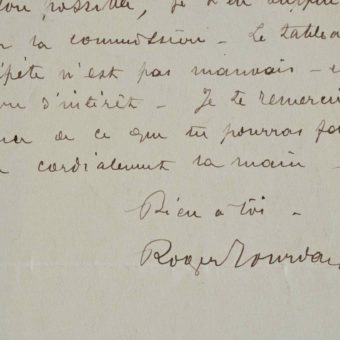 possible, je
la commission — Le tablea
n'est pas mauvais —
d'intérêt — Je te remerci
de ce que tu pourras fai
cordialement ta main —
Bien à toi —
Roger Jourdai